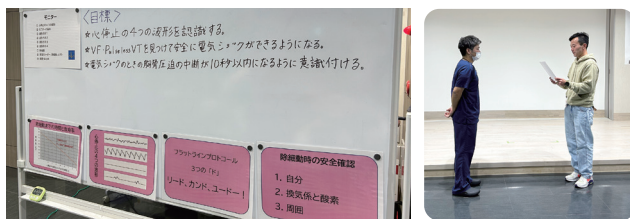 モニター
〈目標〉
☆心停止の4つの波形を認識する。
☆VF・PulselessVTを見つけて安全に電気ショックができるようになる。
☆電気ショックのときの胸骨圧迫の中断が10秒以内になるように意識付ける。
フラットラインプロトコール
3つの「ド」
リード、カンド、ユードー！
除細動時の安全確認
1. 自分
2. 換気係と酸素
3. 周囲